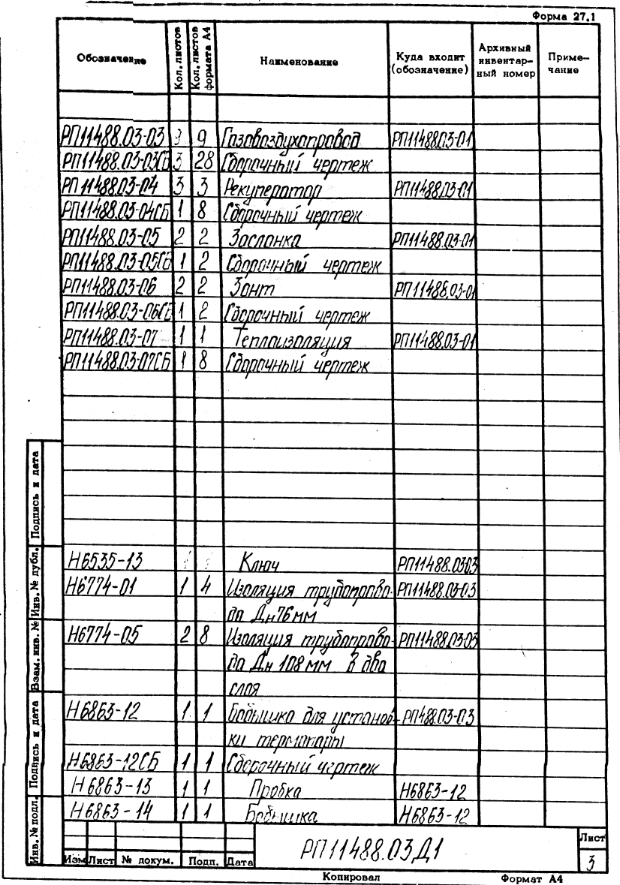 Форма 27.1
Обозначение Кол. листов Кол. листов формата А4 Наименование Куда входит (обозначение) Архивный инвентарный номер Примечание
РП11488.03-03 3 9 Газовоздухопровод РП11488.03-01
РП11488.03-03СБ 3 28 Сборочный чертеж
РП 11488.03-04 3 3 Рекуператор РП11488.03-01
РП11488.03-04СБ 1 8 Сборочный чертеж
РП11488.03-05 2 2 Заслонка РП11488.03-01
РП11488.03-05СБ 1 2 Сборочный чертеж
РП11488.03-06 2 2 Зонт РП11488.03-01
РП11488.03-06СБ 1 2 Сборочный чертеж
РП11488.03-07 1 1 Теплоизоляция РП11488.03-01
РП11488.03-07СБ 1 8 Сборочный чертеж
Н6535-13 Ключ РП11488.03-03
Н6774-01 1 4 Изоляция трубопрово- РП11488.03-03
да Дн76мм
Н6774-05 2 8 Изоляция трубопрово- РП11488.03-03
да Дн 108мм в два
слоя
Н6863-12 1 1 Бобышка для установ- РП488.03-03
ки термопары
Н6863-12СБ 1 1 Сборочный чертеж
Н6863-13 1 1 Пробка Н6863-12
Н6863-14 1 1 Бобышка Н6863-12
Подпись и дата
Инв. № дубл.
Взам. инв. №
Подпись и дата
Инв. № подл.
Изм Лист № докум. Подп. Дата
РП11488.03Д1
Лист
3
Копировал Формат А4